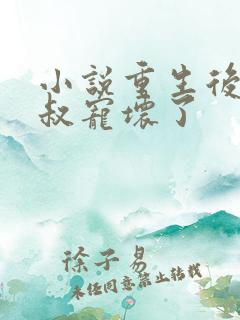 小說重生後
叔寵壞了
徐子易
未經同意禁止轉載